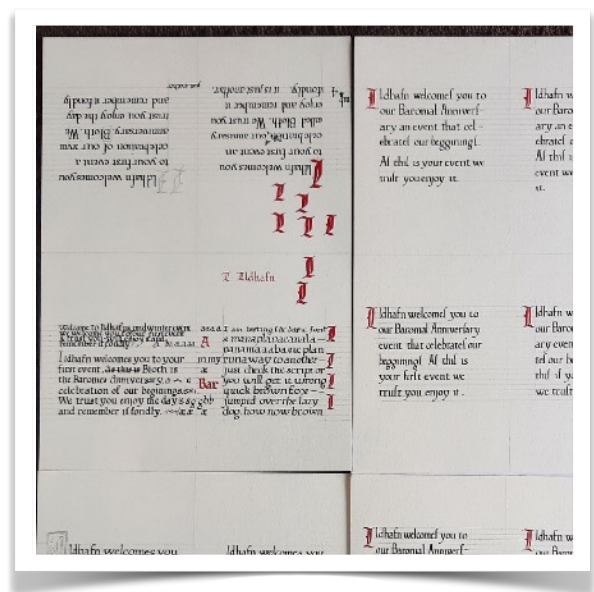 Ildhafn welcomes you
to your first event an
celebration, our annivesary
called Bloth. We trust you
enjoy and remember it
fondly. it is just another.
Ildhafn welcomes you
to your first event a
celebration of our
anniversary, Bloth. We
trust you enjoy the day
and remember it fondly
I Ildhafn
Welcome to Ildhafns midwinter event
we welcome you for our first event
& trust you will enjoy it and
remember it fondly
Ildhafn welcomes you to your
first event. As this is Bloth is
the Baronies Anniversary. a
celebration of our beginings
We trust you enjoy the day
and remember it fondly.
A
Bar
I am testing the basic font
a man a plan a canal a
panama a basic plan
runaway to another
just check the script or
you will get it wrong
quick brown foxe
jumped over the lazy
dog, how now brown
Ildhafn welcomeſ you to
our Baronial Anniverſ-
ary an event that cel-
ebrateſ our beggining!
Aſ thiſ is your event we
truſt you enjoy it.
Ildhafn w
our Baro
ary an e
ebrateſ o
Aſ thiſ i
truſt you
it.
Ildhafn welcomeſ you to
our Baronial Anniverſary
event that celebrateſ our
beggining! Aſ thiſ is
your firſt event we
truſt you enjoy it.
Ildhafn w
our Baron
ary even
teſ our b
thiſ iſ y
we truſt
Ildhafn welcomes you
Ildhafn welcomes you
Ildhafn welcomeſ you to
our Baronial Anniverſ-
Ildhafn w
our Baron